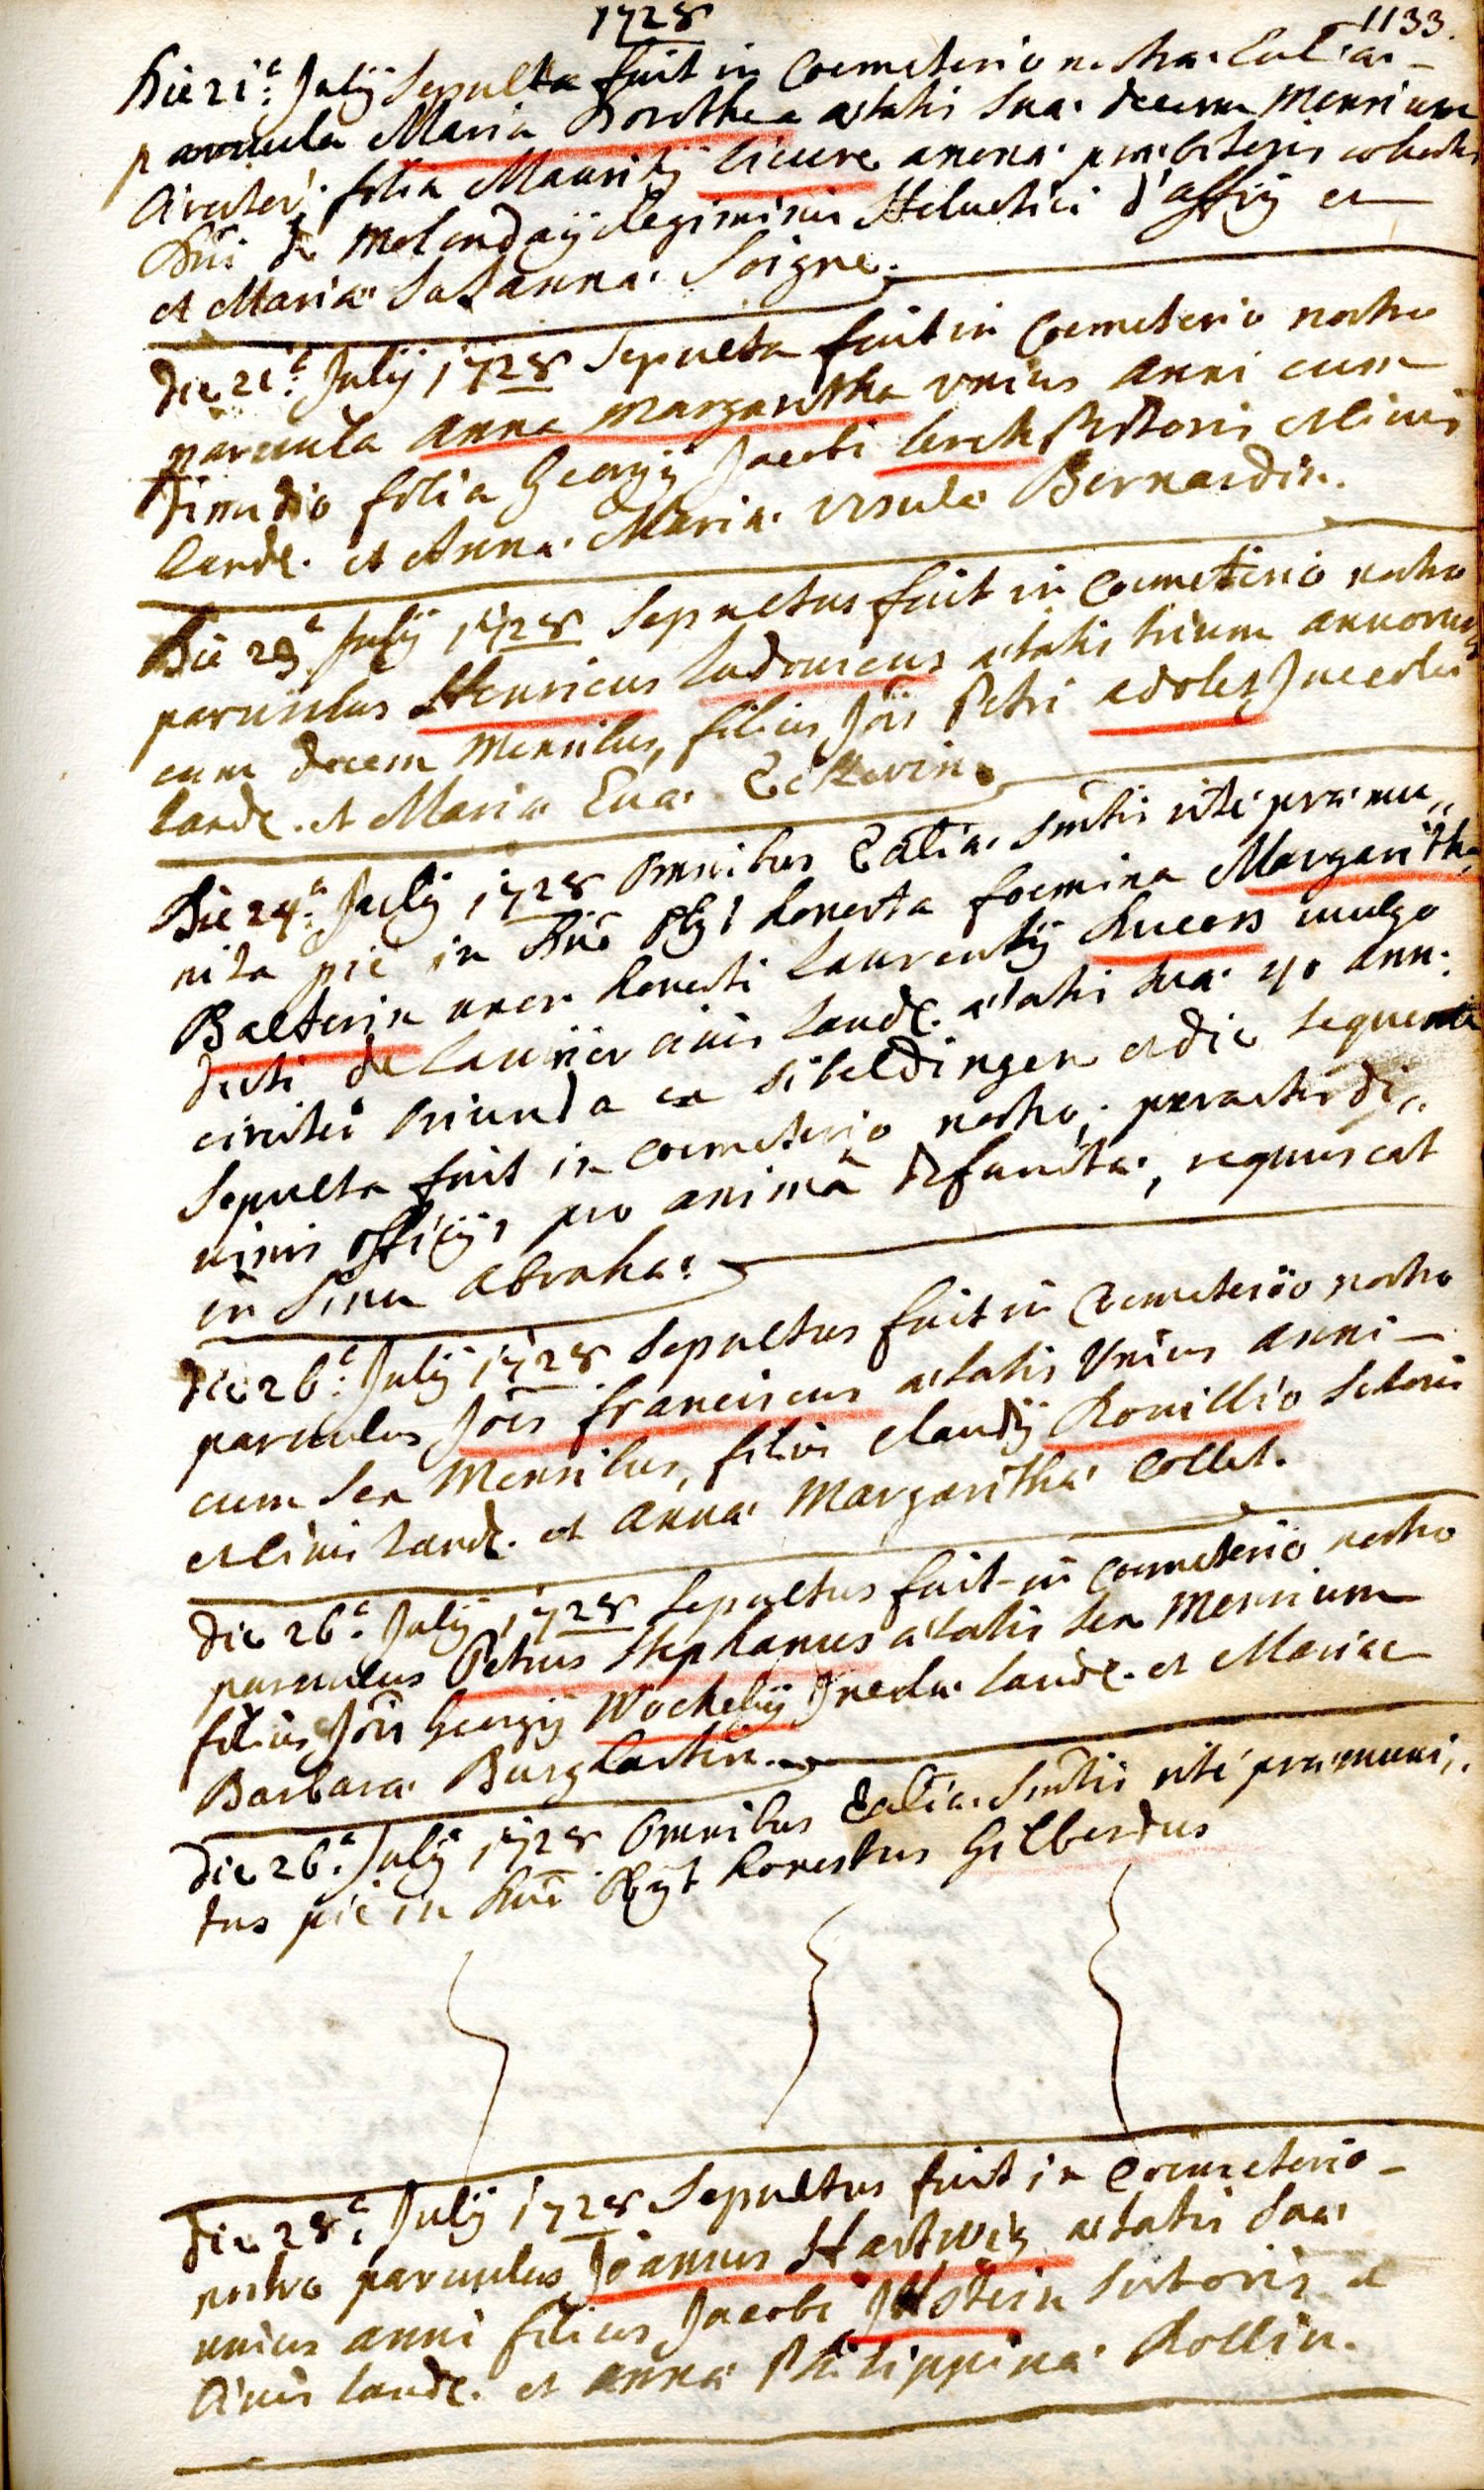 1728
1133.
Die 21ª: Julÿ Sepulta fuit in Coemeterio nostrae Eccl'ae
parvula Maria Dorothea aetatis suae decem mensium
Circiter filia Mauritÿ
Dn̄i de Molondaÿ Regiminis Helvetici d'affrÿ et
et Mariae Susannae Soigne.
Die 21ª: Julÿ 1728 Sepulta fuit in Coemeterio nostro
parvula Anna Margaritha unius Anni cum
dimidio filia Georgÿ Jacobi Lerch Pistoris et Civis
Land: et Annae Mariae Ursulae Bernardin.
Die 23ª Julÿ 1728 Sepultus fuit in Coemeterio nostro
parvulus Henricus Ludovicus aetatis trium annorum
cum decem Mensibus, filius Jōis Petri Incolae
Land: et Maria Eva
Die 24ª: Julÿ 1728 Omnibus Ecc̄liae Sm̄tis ritè praemu„
nita piè in Dn̄o obÿt honesta foemina Margaritha
Balterin uxor honesti Laurentÿ vulgo
dicti de Laurier civis Land: aetatis suae 40 ann:
circiter oriunda ex Sibeldingen et die sequenti
Sepulta fuit in Coemeterio nostro, peractis di„
vinis officÿs pro animā defunctae, requiescat
in Sinu Abrahae.
Die 26ª: Julÿ 1728 Sepultus fuit in Coemeterio nostro
parvulus Jōes Franciscus aetatis Unius anni
cum Sex Mensibus, filius Claudÿ Rouillio Sutoris
et Civis Land: et Annae Margarithae Collet.
Die 26ª: Julÿ 1728 Sepultus fuit in Coemeterio nostro
parvulus Petrus Stephanus aetatis sex Mensium
filius Jōis Georgÿ Wochelÿ Incolae Land: et Mariae
Barbarae
Die 26ª: Julÿ 1728 Omnibus Ecc̄liae Sm̄tis ritè praemuni„
tus piè in Dn̄o Obÿt honestus Gilberdus
Die 28ª: Julÿ 1728 Sepultus fuit in Coemeterio
nostro parvulus Joannes Hartwig aetatis Suae
unius anni filius Jacobi Sutoris et
Civis Land: et Annae Philippinae Rollin.